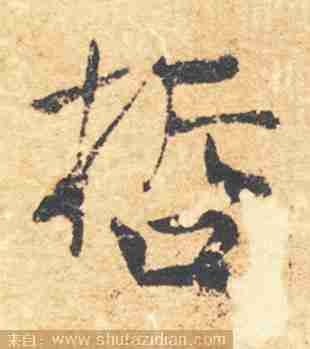 哲
来自：www.shufazidian.com